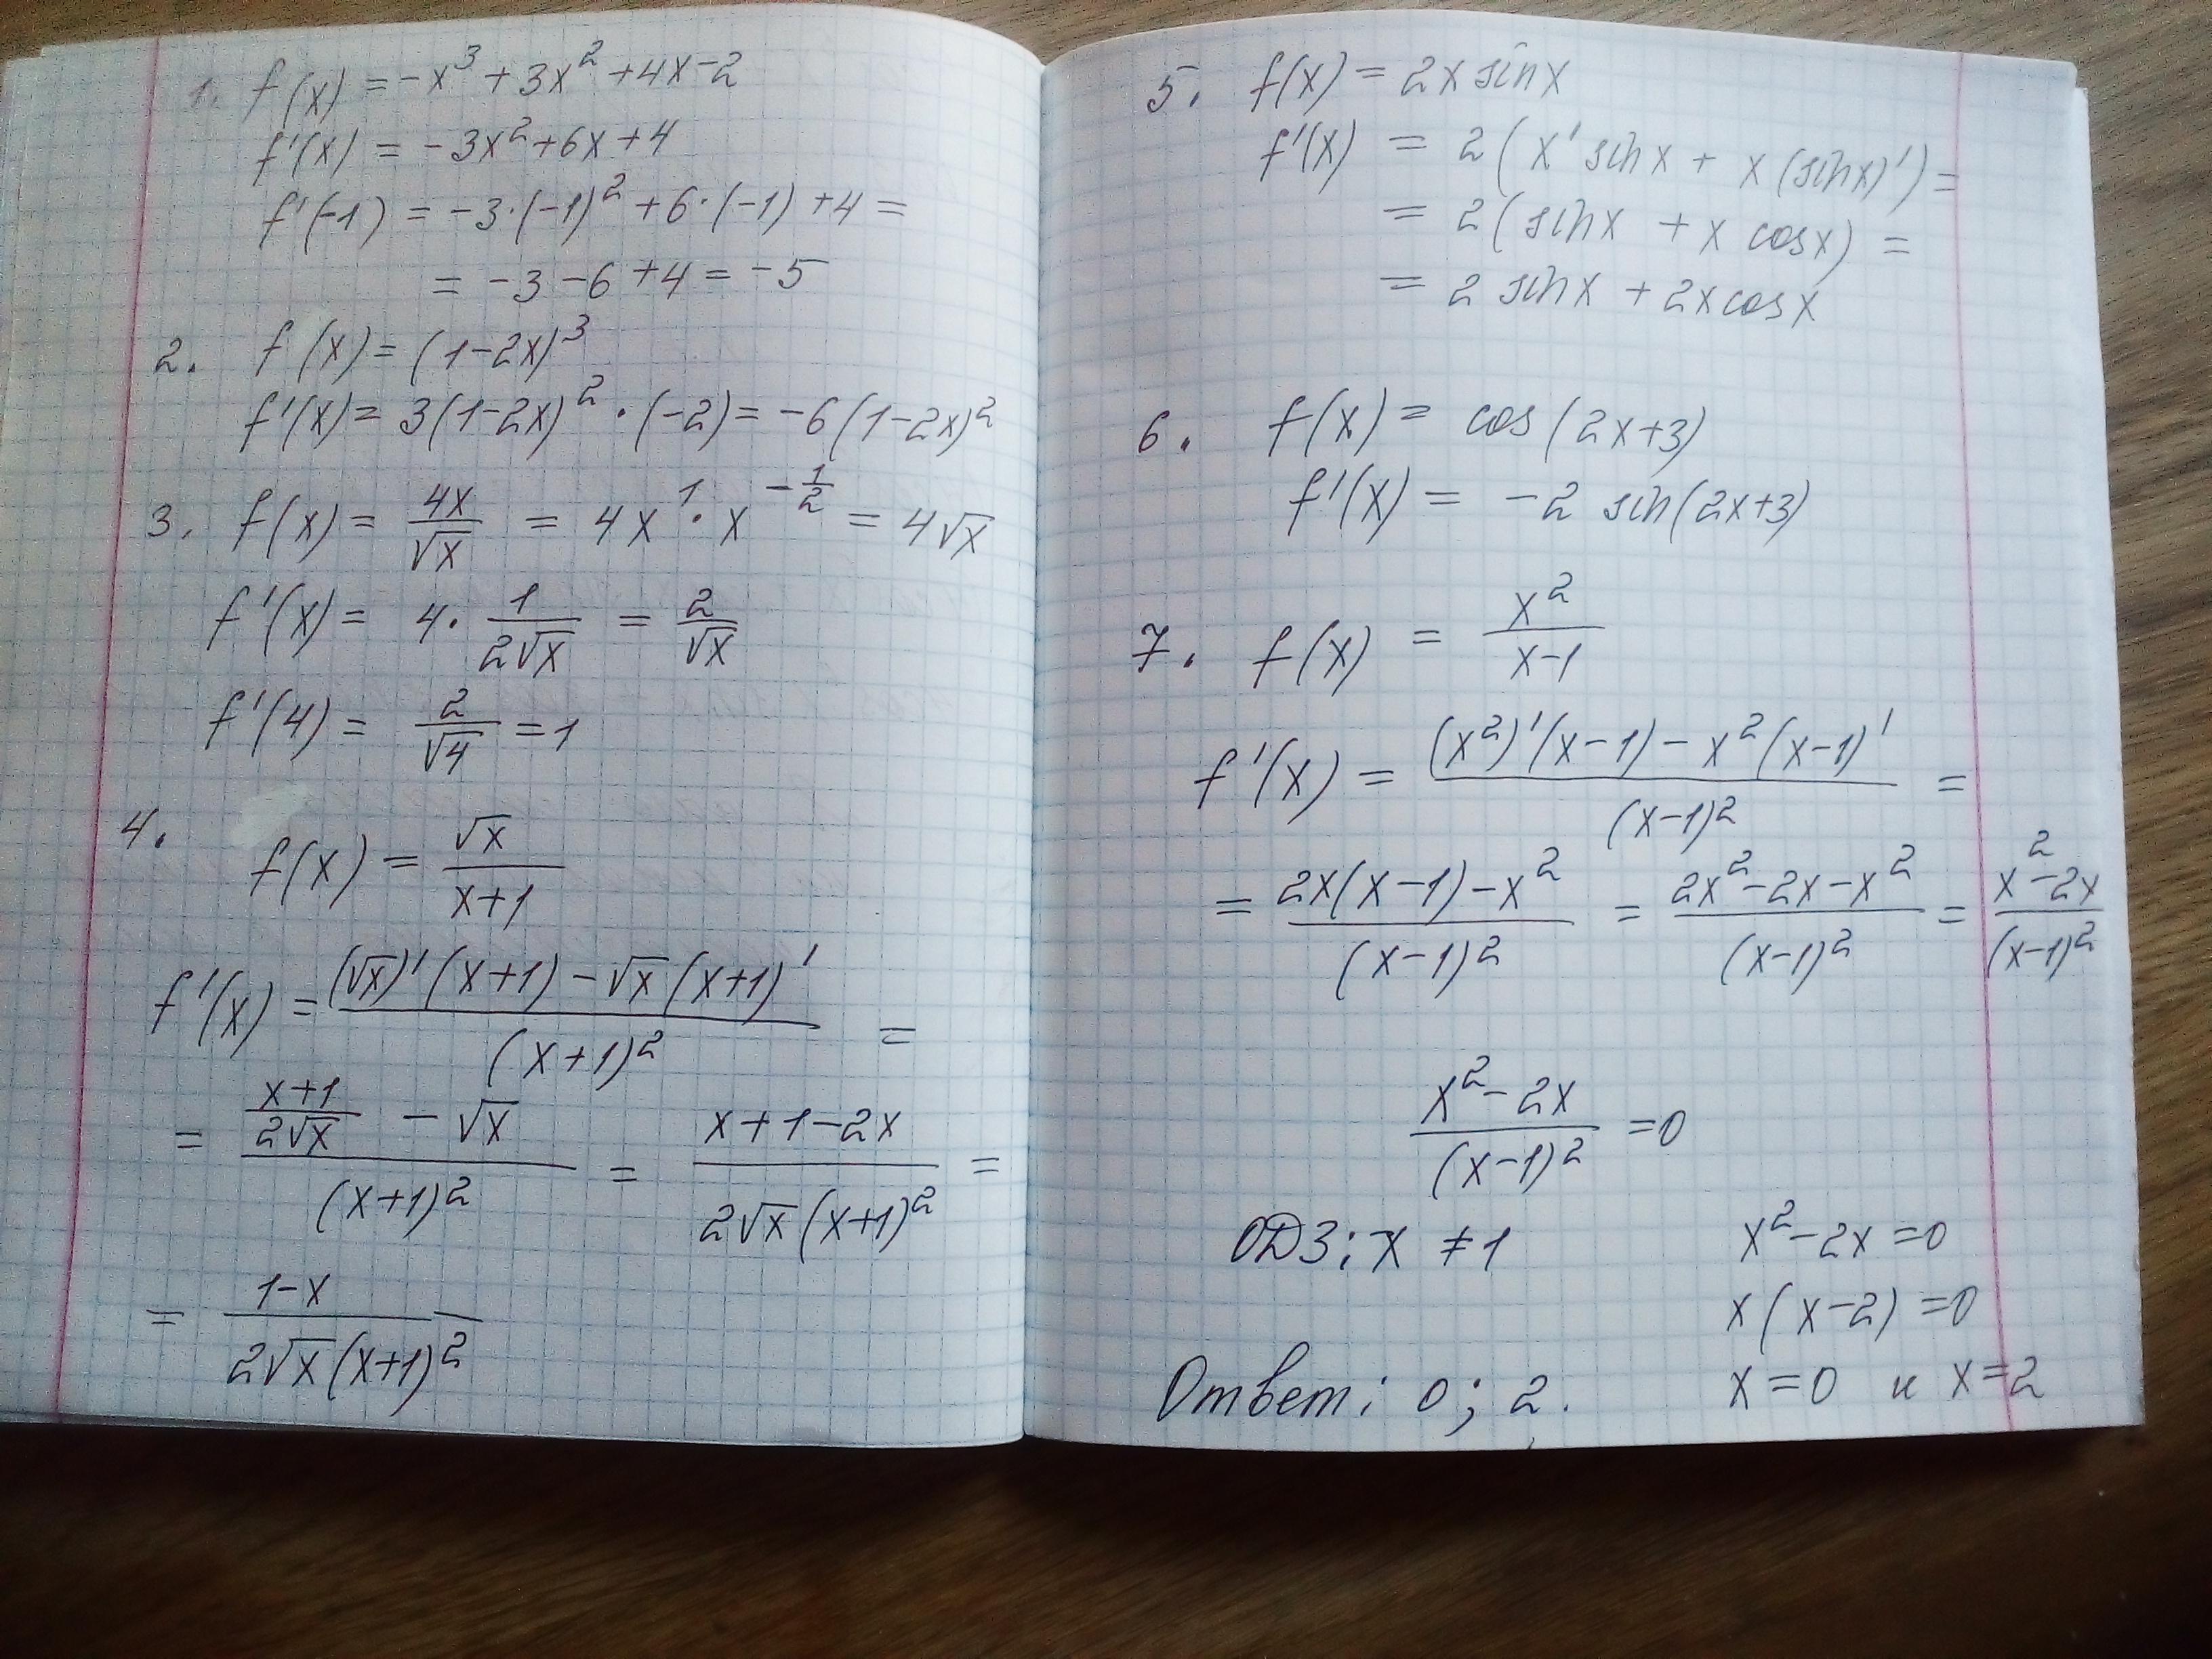 1. f(x) = -x³ + 3x² + 4x - 2
f'(x) = -3x² + 6x + 4
f'(-1) = -3·(-1)² + 6·(-1) + 4 =
= -3 - 6 + 4 = -5
2. f(x) = (1-2x)³
f'(x) = 3(1-2x)²·(-2) = -6(1-2x)²
3. f(x) = 4x/√x = 4x¹·x^(-1/2) = 4√x
f'(x) = 4·1/(2√x) = 2/√x
f'(4) = 2/√4 = 1
4. f(x) = √x/(x+1)
f'(x) = ((√x)'(x+1) - √x(x+1)')/(x+1)² =
= ((x+1)/(2√x) - √x)/(x+1)² = (x+1-2x)/(2√x(x+1)²) =
= (1-x)/(2√x(x+1)²)
5. f(x) = 2x sinx
f'(x) = 2(x' sinx + x(sinx)') =
= 2(sinx + x cosx) =
= 2 sinx + 2x cosx
6. f(x) = cos(2x+3)
f'(x) = -2 sin(2x+3)
7. f(x) = x²/(x-1)
f'(x) = ((x²)'(x-1) - x²(x-1)')/(x-1)² =
= (2x(x-1)-x²)/(x-1)² = (2x²-2x-x²)/(x-1)² = (x²-2x)/(x-1)²
(x²-2x)/(x-1)² = 0
ОДЗ: x ≠ 1
x²-2x = 0
x(x-2) = 0
x = 0 и x = 2
Ответ: 0; 2.